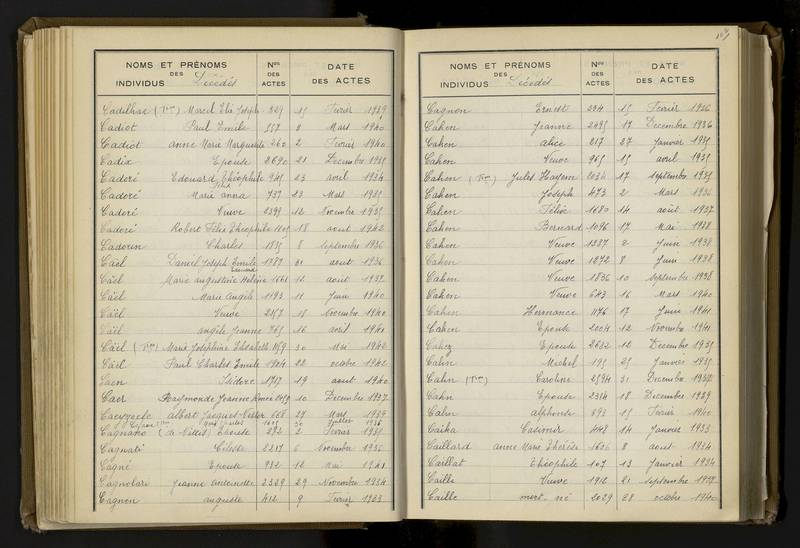 NOMS ET PRÉNOMS DES INDIVIDUS Décédés Nos DES ACTES DATE DES ACTES
Cadilhac Marcel Elie Joseph 329 15 Février 1939
Cadiot Paul Emile 557 2 Mars 1940
Cadiot Anne Marie Marguerite 260 2 Février 1940
Cadix Epouse 2690 21 Décembre 1935
Cadoré Edouard Théophile 945 23 avril 1934
Cadoré Marie Anna 737 23 Mars 1935
Cadoré Veuve 2399 12 Novembre 1935
Cadoré Robert Félix Théophile 18 aout 1942
Cadorin Charles 1835 8 septembre 1936
Caël Daniel Joseph Emile 1787 31 aout 1936
Caël Marie augustine Hélène 1661 12 aout 1937
Caël Marie Angèle 1193 11 Juin 1940
Caël Veuve 2157 15 Novembre 1940
Caël angèle Jeanne 765 16 avril 1941
Caël Marie Joséphine Elisabeth 1159 30 Mai 1942
Caël Paul Charles Emile 1904 22 octobre 1942
Caen Isidore 1717 19 aout 1940
Caer Raymonde Jeanne Renée 10 Décembre 1937
albert Jacques Victor 668 27 Mars 1939
Epouse 292 2 Février 1935
Cagnati Céleste 2217 6 Novembre 1936
Cagné Epouse 932 12 Mai 1941
Jeanne antoinette 2329 29 Novembre 1934
Cagnon auguste 412 9 Février 1933
NOMS ET PRÉNOMS DES INDIVIDUS Décédés Nos DES ACTES DATE DES ACTES
Cagnon Ernest 294 15 Février 1936
Cahen Jeanne 2495 17 Décembre 1936
Cahen alice 217 27 Janvier 1935
Cahen Veuve 965 15 avril 1935
Cahen Jules Hayem 2034 17 septembre 1935
Cahen Joseph 473 2 Mars 1936
Cahen Félix 1680 14 août 1937
Cahen Bernard 1096 17 Mai 1938
Cahen Veuve 1227 2 Juin 1938
Cahen Veuve 1272 8 Juin 1938
Cahen Veuve 1836 10 septembre 1938
Cahen Veuve 643 16 Mars 1940
Cahen Hermance 1176 17 Juin 1941
Cahen Epouse 2004 12 Novembre 1941
Cahez Epouse 2632 12 Décembre 1935
Cahn Michel 195 25 Janvier 1935
Cahn Caroline 2594 31 Décembre 1937
Cahn Epouse 2314 18 Décembre 1939
Cahn alphonse 393 15 Février 1940
Caika Casimir 148 14 Janvier 1933
Caillard anne Marie Thérèse 1606 8 aout 1934
Caillat Théophile 107 13 Janvier 1934
Caille Veuve 1912 21 septembre 1937
Caille mort-né 2029 28 octobre 1940